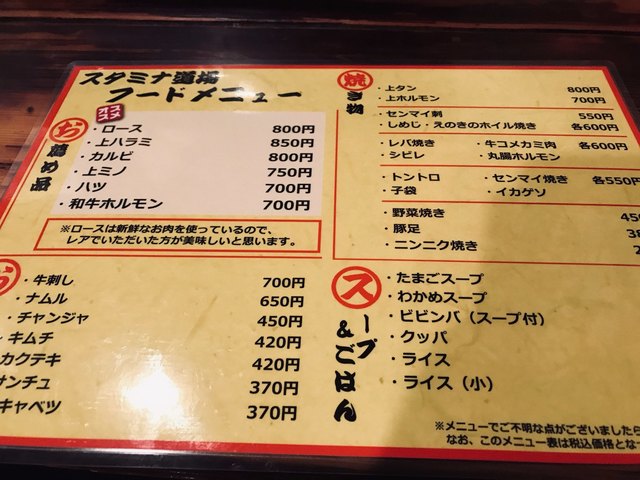 スタミナ道場
フードメニュー
オススメ
お薦め品
・ロース 800円
・上ハラミ 850円
・カルビ 800円
・上ミノ 750円
・ハツ 700円
・和牛ホルモン 700円
※ロースは新鮮なお肉を使っているので、
レアでいただいた方が美味しいと思います。
・牛刺し 700円
・ナムル 650円
・チャンジャ 450円
キムチ 420円
カクテキ 420円
サンチュ 370円
キャベツ 370円
焼き物
・上タン 800円
・上ホルモン 700円
・センマイ刺 550円
・しめじ・えのきのホイル焼き 各600円
・レバ焼き ・牛コメカミ肉 各600円
・シビレ ・丸腸ホルモン
・トントロ ・センマイ焼き 各550円
・子袋 ・イカゲソ
・野菜焼き 45
・豚足 38
・ニンニク焼き
スープ&ごはん
・たまごスープ
・わかめスープ
・ビビンバ（スープ付）
・クッパ
・ライス
・ライス（小）
※メニューでご不明な点がございましたら
なお、このメニュー表は税込価格とな